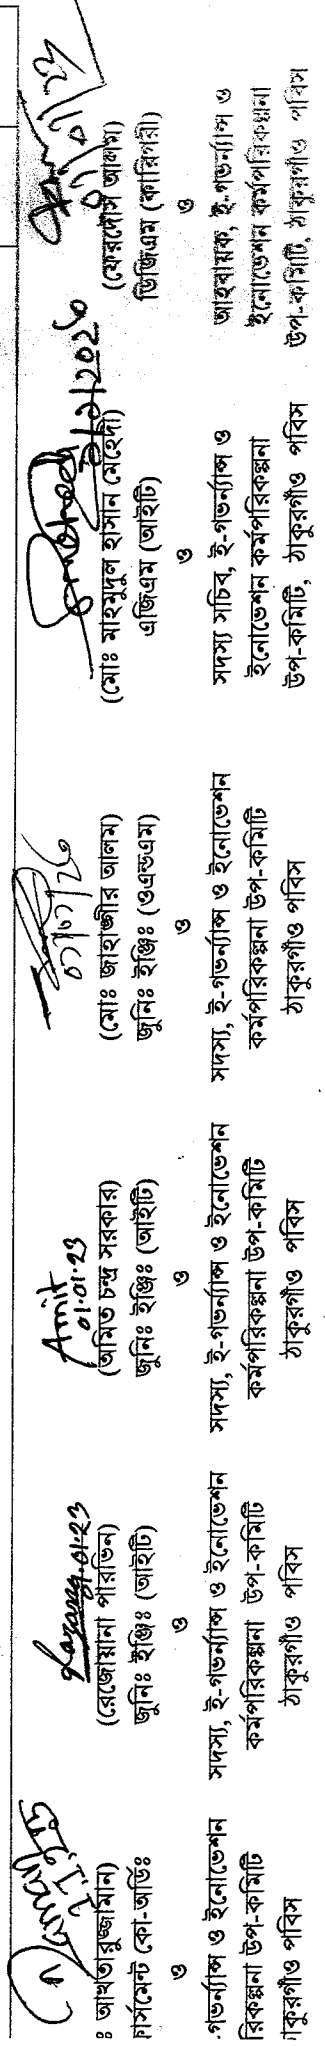 ঃ আখতারুজ্জামান)
র্সমেন্ট কো-অর্ডিঃ
ও
-গভর্ন্যান্স ও ইনোভেশন
রিকল্পনা উপ-কমিটি
াকুরগাঁও পবিস
01.23
(রেজোয়ানা পারভিন)
জুনিঃ ইঞ্জিঃ (আইটি)
ও
সদস্য, ই-গভর্ন্যান্স ও ইনোভেশন
কর্মপরিকল্পনা উপ-কমিটি
ঠাকুরগাঁও পবিস
Amit
01.01.23
(অমিত চন্দ্র সরকার)
জুনিঃ ইঞ্জিঃ (আইটি)
ও
সদস্য, ই-গভর্ন্যান্স ও ইনোভেশন
কর্মপরিকল্পনা উপ-কমিটি
ঠাকুরগাঁও পবিস
(মোঃ জাহাঙ্গীর আলম)
জুনিঃ ইঞ্জিঃ (ওএন্ডএম)
ও
সদস্য, ই-গভর্ন্যান্স ও ইনোভেশন
কর্মপরিকল্পনা উপ-কমিটি
ঠাকুরগাঁও পবিস
(মোঃ মাহমুদুল হাসান মেহেদী)
এজিএম (আইটি)
ও
সদস্য সচিব, ই-গভর্ন্যান্স ও
ইনোভেশন কর্মপরিকল্পনা
উপ-কমিটি, ঠাকুরগাঁও পবিস
(ফেরদৌস আলম)
ডিজিএম (কারিগরী)
ও
আহবায়ক, ই-গভর্ন্যান্স ও
ইনোভেশন কর্মপরিকল্পনা
উপ-কমিটি, ঠাকুরগাঁও পবিস